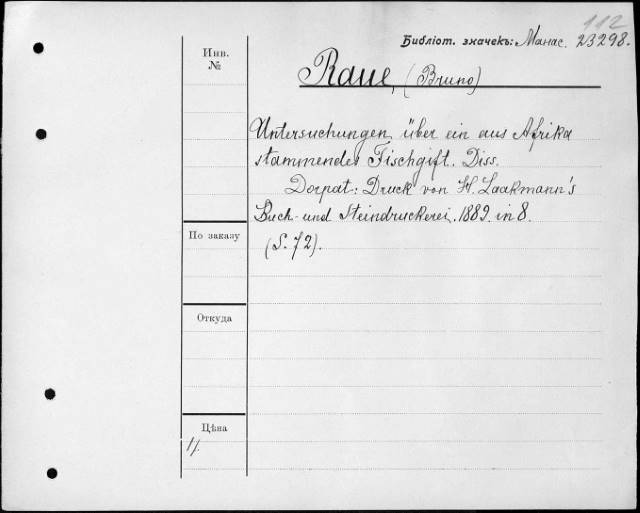 112
Библіот. значекъ: Манас. 23298.
Инв. №
Raue, (Bruno)
Untersuchungen über ein aus Afrika
stammendes Fischgift. Diss.
Dorpat: Druck von H. Laakmann's
Buch- und Steindruckerei. 1889. in 8.
По заказу
(S. 72).
Откуда
Цѣна
1/.